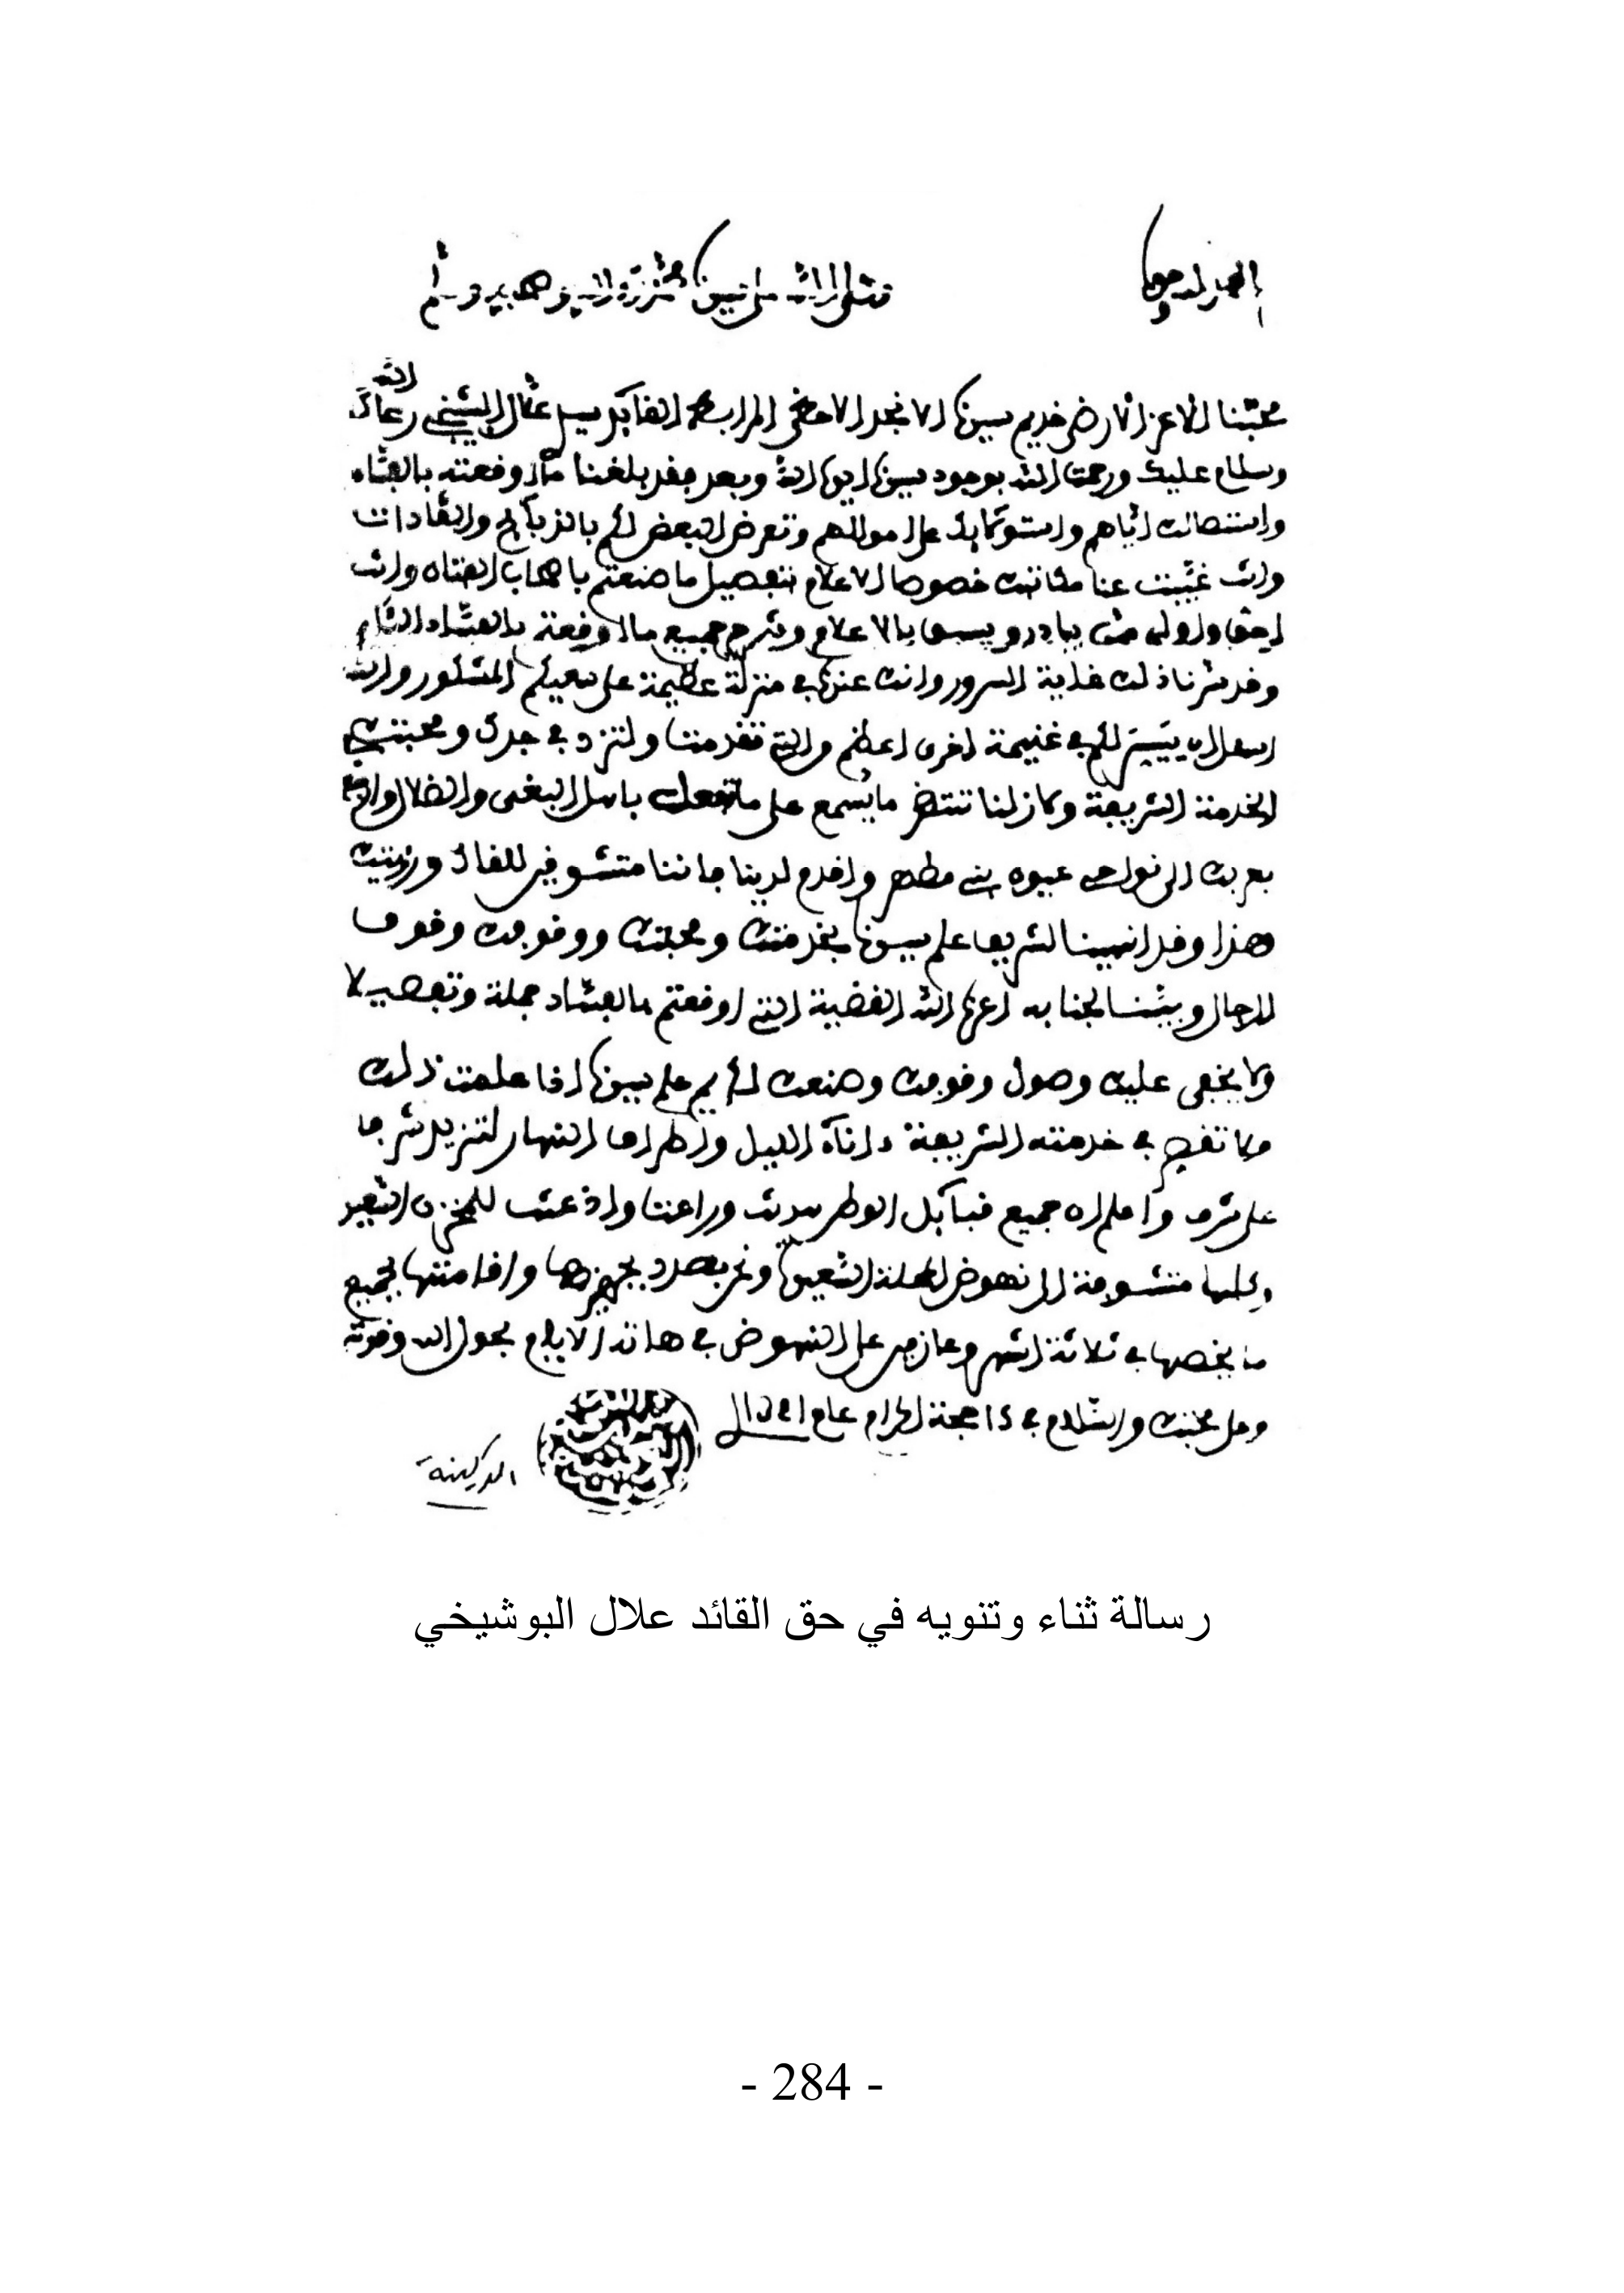 الحمد لله وحده
وصلى الله على سيدنا محمد وآله وصحبه وسلم
محبنا الأعز الأرضى خديم سيدنا الأنجد الأحظى المرابط القائد سيدي علال البوشيخي رعاك الله
وسلام عليك ورحمة الله بوجود سيدنا أيده الله وبعد فقد بلغنا ما أوقعته بالفساد
أموالهم وتعرض البعض لكم بالذبائح
وأنت غيبت عنا خصوصا الإعلام بتفصيل ما صنعتم بأصحاب الفساد وأنت
أحق وأولى من يبادر ويسبق بالإعلام وشرح جميع ما أوقعته بالفساد
وقد سرنا ذلك غاية السرور وأنت عندنا في منزلة عظيمة على سعيكم المشكور والله
أسأل أن ييسر لكم في غنيمة أخرى أعظم من التي تقدمت ولتزد في جدك ومحبتك
الخدمة الشريفة ولا زلنا ننتظر ما يسمع على ما تفعل بأهل البغي والضلال
إلى نواحي عيون سيدي ملوك واقدم لدينا فإننا متشوقين للقاك ورؤيتك
هذا وقد أنهينا لشريف علم سيدنا بخدمتك ومحبتك ووقوفك وقوف
الرجال وبينا لجنابه أعزه الله القضية التي أوقعتم بالفساد جملة وتفصيلا
ولا يخفى عليك وصول وقوفك وصنعك لكريم علم سيدنا فإذا علمت ذلك
فلا تقصر في خدمته الشريفة آناء الليل وأطراف النهار لتزيد شرفا
على شرف واعلم أن جميع قبائل الوطن هدنت وراعت وأذعنت للمخزن السعيد
وكلها متشوقة إلى نهوض المحلة السعيدة ونحن بصدد تجهيزها وإقامتها بجميع
ما يخصها في ثلاثة أشهر وعازمين على النهوض في هاته الأيام بحول الله وقوته
وعلى محبتك والسلام في 15 حجة الحرام عام
رسالة ثناء وتنويه في حق القائد علال البوشيخي
- 284 -